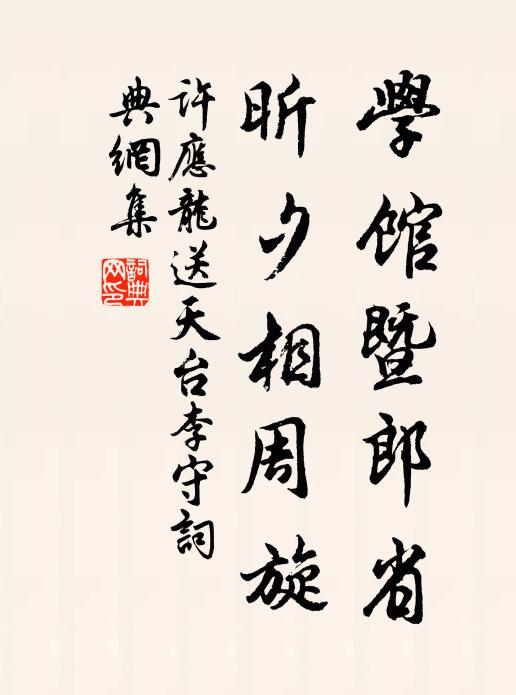 學館暨郎省
昕夕相周旋
許應龍送天台李守詞
典網集
詞典網印